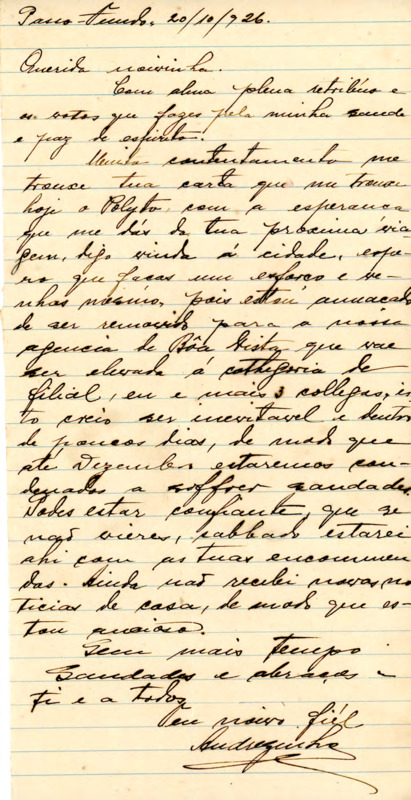 Passo-Fundo, 20/10/926.
Querida noivinha.
Com alma plena retribúo e
os votos que fazes pela minha saude
e paz de espirito.
Muito contentamento me
trouxe tua carta que me trouxe
hoje o Polyto, com a esperança
que me dás da tua proxima via
gem, digo vinda á cidade, espe-
ro que faças um esforço e ve-
nhas mesmo, pois estou ameaçado
de ser removido para a nossa
agencia de Bôa Vista, que vae
ser elevada á cathegoria de
filial, eu e mais 3 collegas, is
to creio ser inevitavel e dentro
de poucos dias, de modo que
até Dezembro estaremos con-
denados a soffrer saudades.
Podes estar confiante, que se
naõ vieres, sabbado estarei
ahi com as tuas encommen
das. Ainda naõ recebi novas no
ticias de casa, de modo que es-
tou ancioso.
Sem mais tempo
Saudades e abraços a
ti e a todos
Teu noivo fiél
Andrezinho